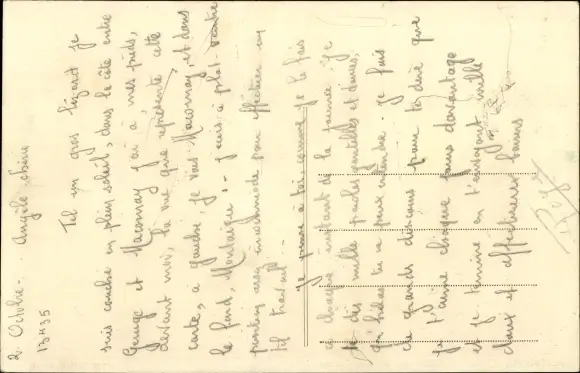 2 Octobre -
13H35
Angèle chérie
Tel un gros lézard je
suis couché en plein soleil, dans la côte entre
Geruge et Macornay j'ai à mes pieds,
devant moi, la vue que représente cette
carte, à gauche, je vois Macornay, et dans
le fond, Montaigu. - Je suis à plat-ventre
position assez incommode pour effectuer un
tel travail. -
Je pense à toi, comme je le fais
à chaque instant de la journée. Je
te dis mille paroles gentilles et douces,
hélas tu ne peux entendre. Je fais
de grands discours pour te dire que
je t'aime chaque jour davantage
et je termine en t'envoyant mille
doux et affectueux baisers